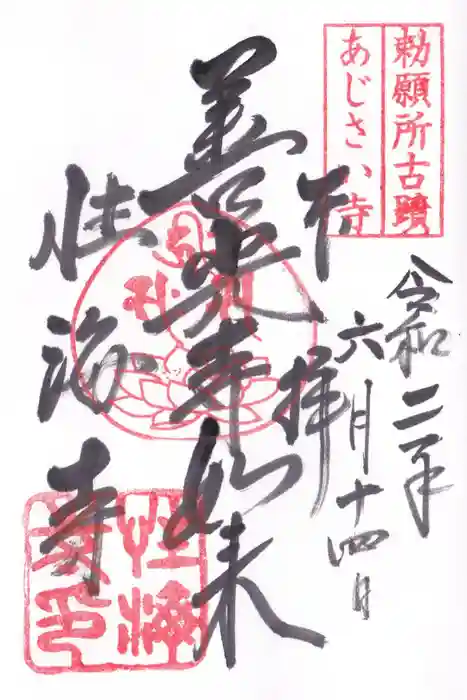 勅願所古蹟
あじさい寺
奉拝
令和二年
六月十四日
善光寺如来
性海寺
性海
寺印